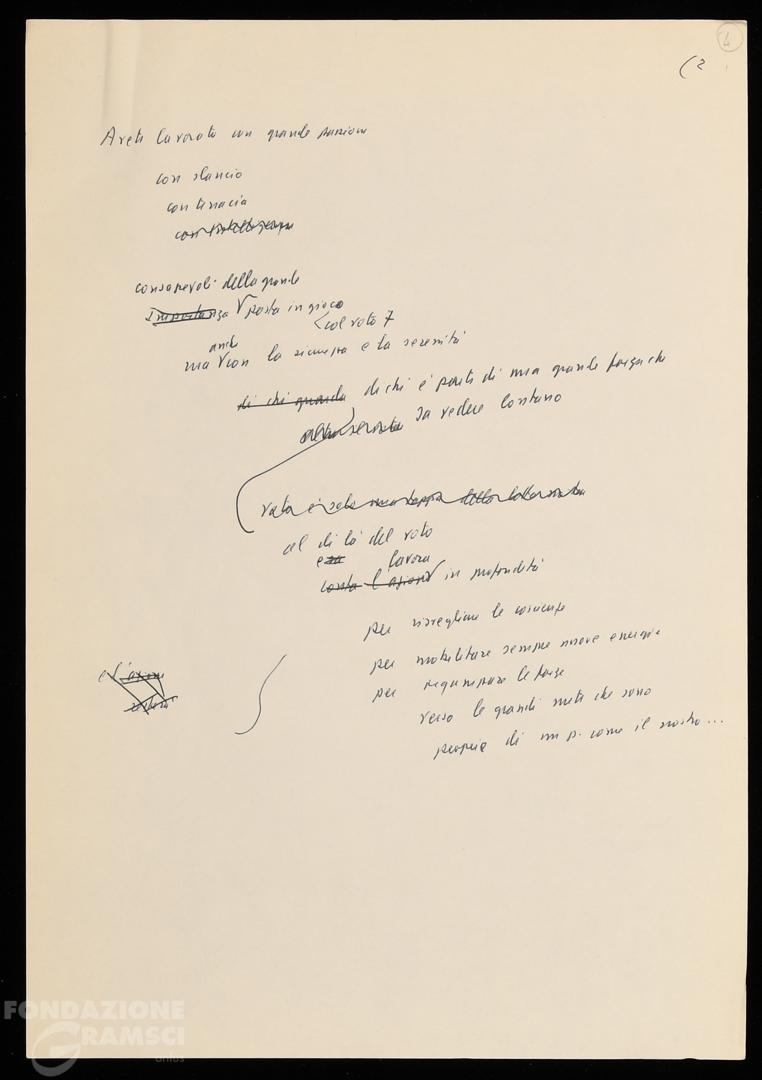 4
(2
Avete lavorato con grande passione
con slancio
con tenacia
consapevoli della grande
Importanza posta in gioco
col voto 7
anche
ma con la sicurezza e la serenità
di chi guarda di chi è parte di una grande forza che
sa vedere lontano
vota è solo una tappa della lotta
al di là del voto
e lavora
conta l'azione in profondità
per risvegliare le coscienze
per mobilitare sempre nuove energie
e l'azione
per riguadagnare le forze
verso le grandi mete che sono
proprie di un p. come il nostro...
FONDAZIONE
GRAMSCI
onlus